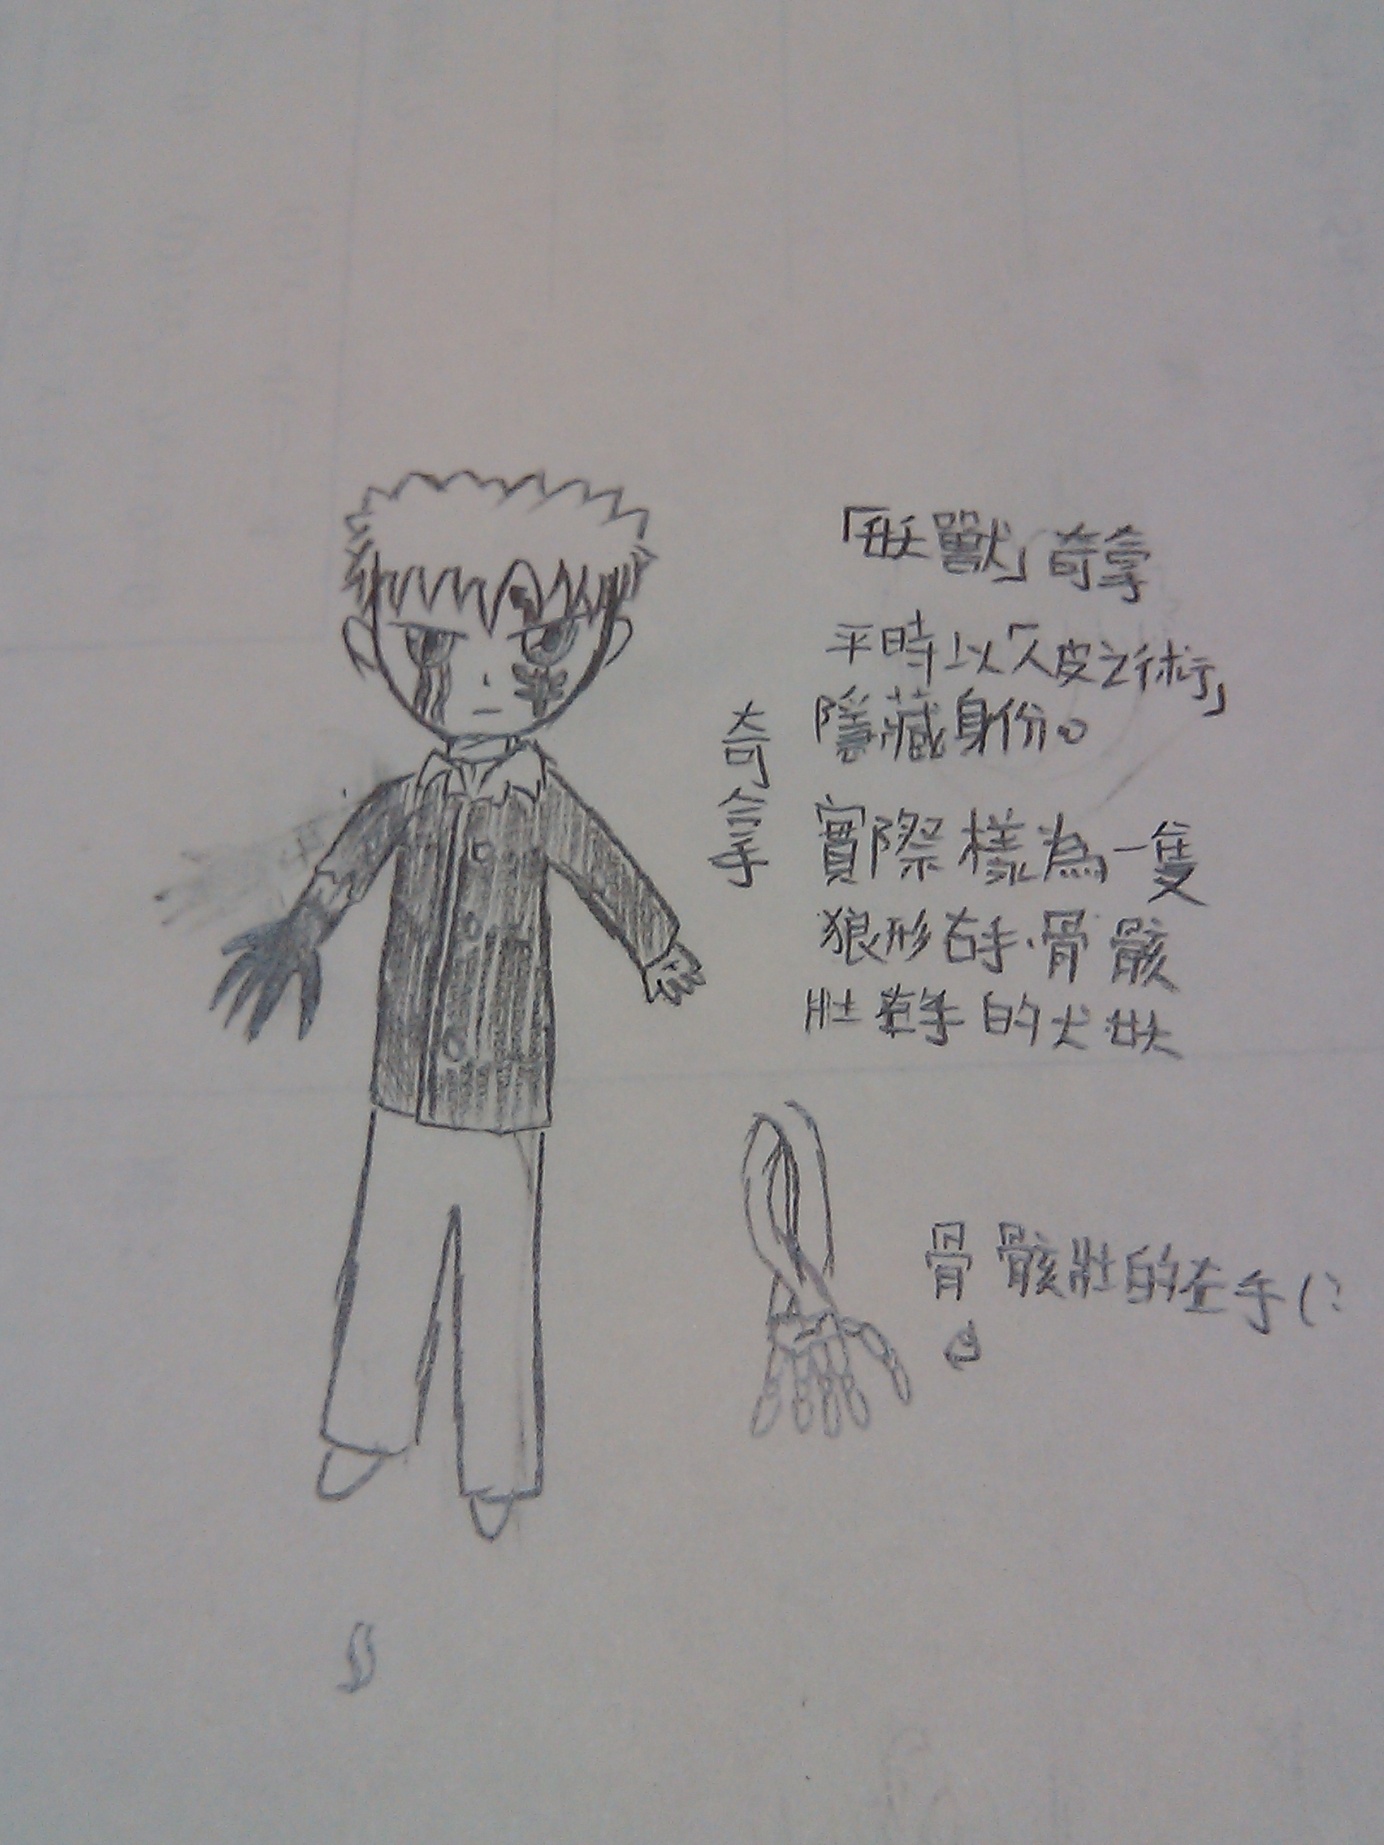 「妖獸」奇拿
平時以「人皮之術」
隱藏身份。
奇拿
實際樣為一隻
狼形右手、骨骸
壯左手的犬妖
骨骸壯的左手(: